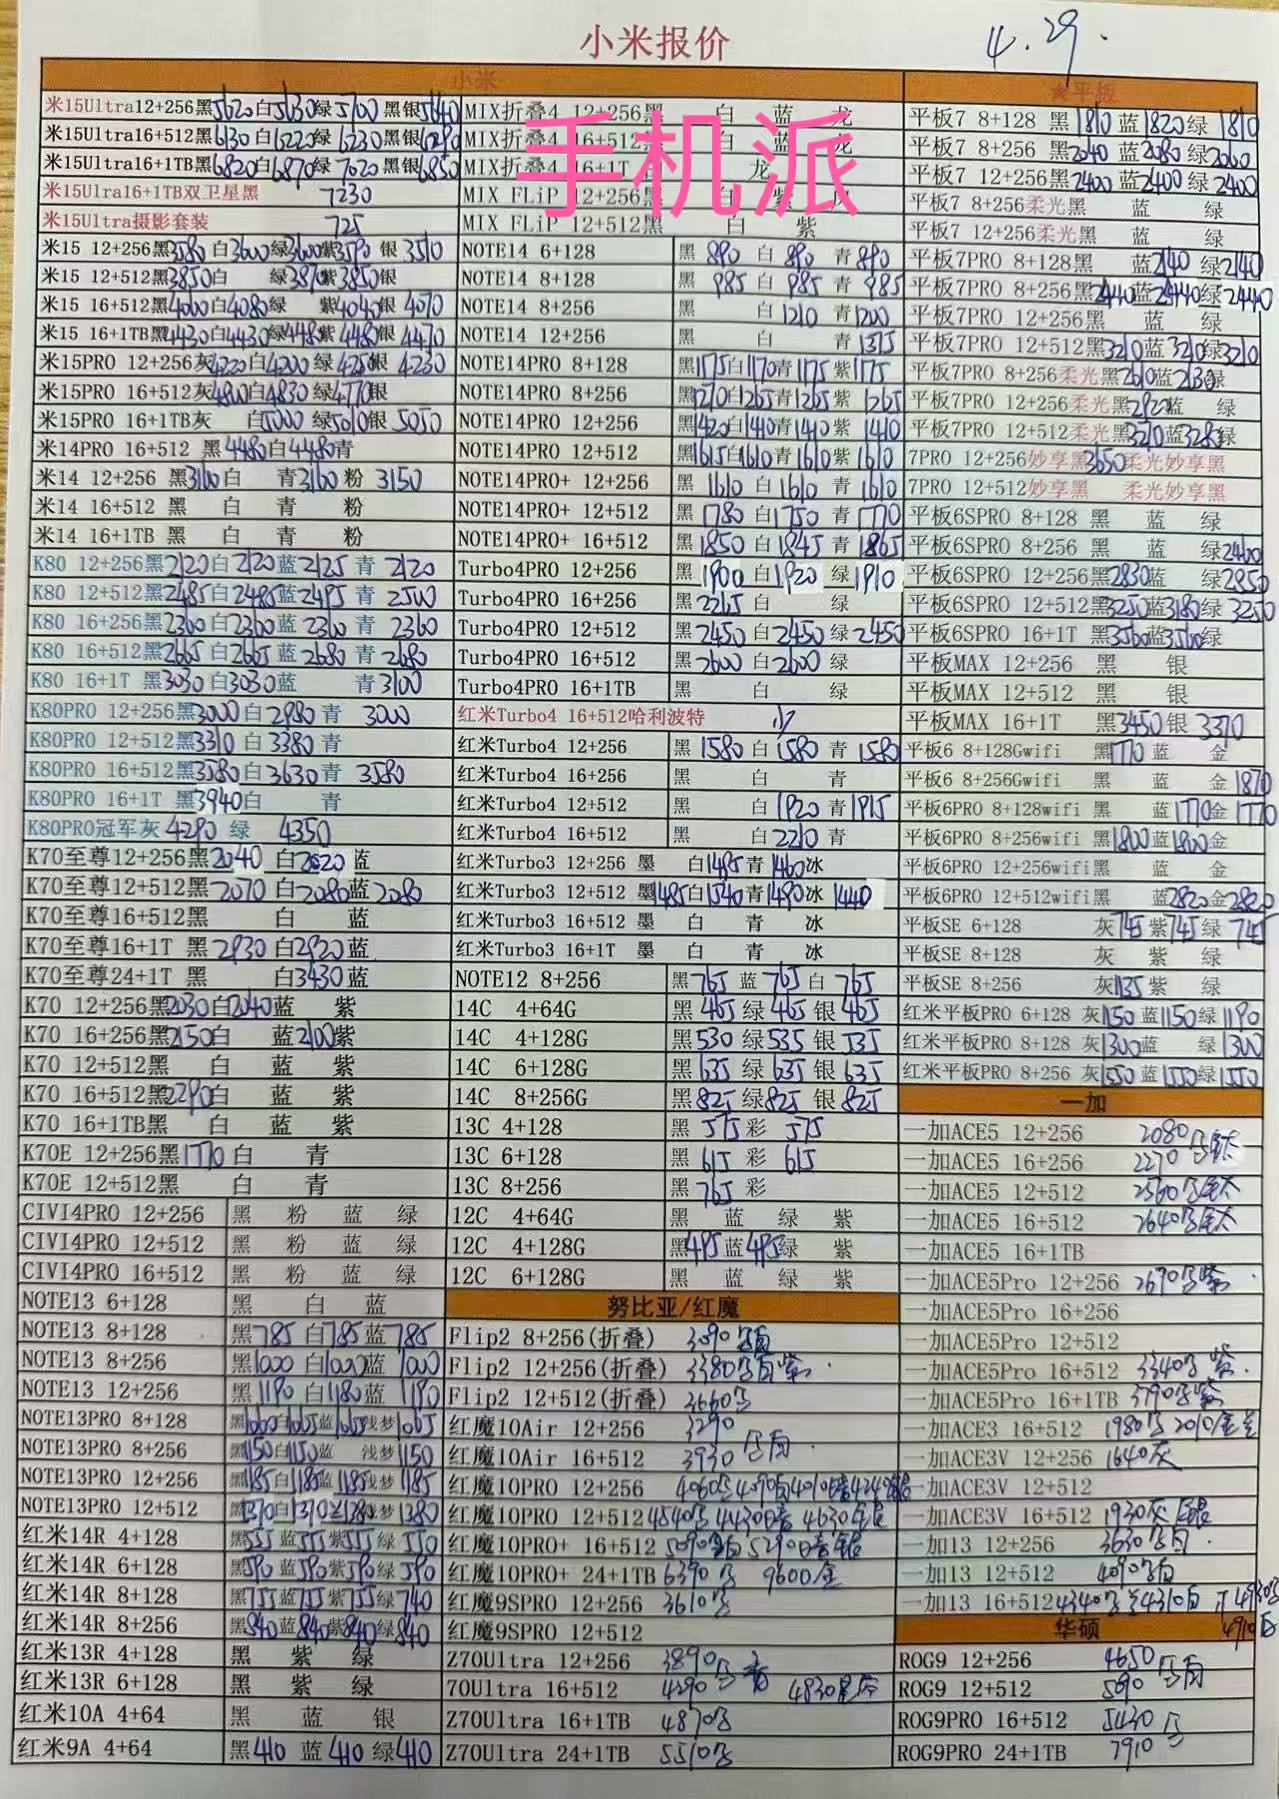 小米报价
4.29.
手机派
小米
米15Ultra12+256黑5620白5630绿5700 黑银5640
米15Ultra16+512黑6130 白6220绿6230黑银6290
米15Ultra16+1TB黑6820白6870绿 7020 黑银6850
米15Ulra16+1TB双卫星黑 7230
米15Ultra摄影套装 725
米15 12+256黑3580 白3600绿3600紫3590 银 3510
米15 12+512黑3850白 绿3870紫3850银
米15 16+512黑4000白4080绿 紫4040银 4070
米15 16+1TB黑4430白4430绿4480紫 4480银 4470
米15PRO 12+256灰4220白4200 绿4250银 4230
米15PRO 16+512灰4800白4830绿4770银
米15PRO 16+1TB灰 白5000 绿5010银 5050
米14PRO 16+512 黑4480白4480青
米14 12+256 黑3160白 青3160 粉 3150
米14 16+512 黑 白 青 粉
米14 16+1TB 黑 白 青 粉
K80 12+256黑2120白2120蓝2125 青 2120
K80 12+512黑2485白2485蓝2495 青 2500
K80 16+256黑2360白2360蓝 2360 青 2360
K80 16+512黑2665白2665蓝 2680 青 2680
K80 16+1T 黑3030白3030蓝 青3100
K80PRO 12+256黑3000白 2980 青 3000
K80PRO 12+512黑3310 白 3380青
K80PRO 16+512黑3580白3630青 3580
K80PRO 16+1T 黑3940白 青
K80PRO冠军灰 4290 绿 4350
K70至尊12+256黑2040 白2020 蓝
K70至尊12+512黑2070 白2080蓝2080
K70至尊16+512黑 白 蓝
K70至尊16+1T 黑 2930 白2920蓝
K70至尊24+1T 黑 白3430蓝
K70 12+256黑2030白2040蓝 紫
K70 16+256黑2150白 蓝2100紫
K70 12+512黑 白 蓝 紫
K70 16+512黑2290白 蓝 紫
K70 16+1TB黑 白 蓝 紫
K70E 12+256黑1770 白 青
K70E 12+512黑 白 青
CIVI4PRO 12+256 黑 粉 蓝 绿
CIVI4PRO 12+512 黑 粉 蓝 绿
CIVI4PRO 16+512 黑 粉 蓝 绿
NOTE13 6+128 黑 白 蓝
NOTE13 8+128 黑785 白785蓝785
NOTE13 8+256 黑1000 白1020蓝 1000
NOTE13 12+256 黑1190 白1180蓝 1190
NOTE13PRO 8+128 黑1060白1065蓝1065浅梦1065
NOTE13PRO 8+256 黑1150白1150蓝 浅梦1150
NOTE13PRO 12+256 黑1185白1185蓝1185浅梦1185
NOTE13PRO 12+512 黑1370白1370蓝1380浅梦1380
红米14R 4+128 黑555 蓝555紫555 绿 550
红米14R 6+128 黑590 蓝590紫590绿590
红米14R 8+128 黑755蓝755紫755绿740
红米14R 8+256 黑840蓝840紫840绿840
红米13R 4+128 黑 紫 绿
红米13R 6+128 黑 紫 绿
红米10A 4+64 黑 蓝 银
红米9A 4+64 黑410 蓝410 绿410
MIX折叠4 12+256黑 白 蓝 龙
MIX折叠4 16+512黑 白 蓝 龙
MIX折叠4 16+1T 龙
MIX FLiP 12+256黑 白 紫
MIX FLiP 12+512黑 白 紫
NOTE14 6+128 黑 890 白 890 青890
NOTE14 8+128 黑 985 白 985 青 985
NOTE14 8+256 黑 白1210 青1200
NOTE14 12+256 黑 白 青1375
NOTE14PRO 8+128 黑1175白1170青1175紫1175
NOTE14PRO 8+256 黑1270白1265青1265紫 1265
NOTE14PRO 12+256 黑1420白1410青1410紫 1410
NOTE14PRO 12+512 黑1615白1610青1610紫 1610
NOTE14PRO+ 12+256 黑 1610 白 1610 青 1610
NOTE14PRO+ 12+512 黑 1780 白1750 青1770
NOTE14PRO+ 16+512 黑 1850 白1845 青1865
Turbo4PRO 12+256 黑1900 白1920 绿1910
Turbo4PRO 16+256 黑2265 白 绿
Turbo4PRO 12+512 黑2450 白2450 绿2450
Turbo4PRO 16+512 黑2600 白2600 绿
Turbo4PRO 16+1TB 黑 白 绿
红米Turbo4 16+512哈利波特
红米Turbo4 12+256 黑 1580 白1580 青 1580
红米Turbo4 16+256 黑 白 青
红米Turbo4 12+512 黑 白1920青1915
红米Turbo4 16+512 黑 白2210青
红米Turbo3 12+256 墨 白1485青1460冰
红米Turbo3 12+512 墨1485白1540青1490冰 1440
红米Turbo3 16+512 墨 白 青 冰
红米Turbo3 16+1T 墨 白 青 冰
NOTE12 8+256 黑765 蓝 765 白 765
14C 4+64G 黑465绿465 银465
14C 4+128G 黑530 绿535 银 535
14C 6+128G 黑635 绿635 银 635
14C 8+256G 黑825 绿825 银825
13C 4+128 黑 575彩 575
13C 6+128 黑 615 彩 615
13C 8+256 黑765 彩
12C 4+64G 黑 蓝 绿 紫
12C 4+128G 黑495蓝495绿 紫
12C 6+128G 黑 蓝 绿 紫
努比亚/红魔
Flip2 8+256(折叠) 3090
Flip2 12+256(折叠) 3380 紫
Flip2 12+512(折叠) 3660
红魔10Air 12+256 3290
红魔10Air 16+512 3930
红魔10PRO 12+256 4060 4090
红魔10PRO 12+512 4540 4430 4630
红魔10PRO+ 16+512 5090 5290
红魔10PRO+ 24+1TB 6390 9600金
红魔9SPRO 12+256 3610
红魔9SPRO 12+512
Z70Ultra 12+256 3890
70Ultra 16+512 4290 4830
Z70Ultra 16+1TB 4870
Z70Ultra 24+1TB 5510
★平板
平板7 8+128 黑1810 蓝1820绿 1810
平板7 8+256 黑2040 蓝2080 绿2060
平板7 12+256黑2400 蓝2400 绿2400
平板7 8+256柔光黑 蓝 绿
平板7 12+256柔光黑 蓝 绿
平板7PRO 8+128黑 蓝2140 绿2140
平板7PRO 8+256黑2440蓝2440绿2440
平板7PRO 12+256黑 蓝 绿
平板7PRO 12+512黑3210蓝3210绿3210
平板7PRO 8+256柔光黑2610蓝2630绿
平板7PRO 12+256柔光黑2820蓝 绿
平板7PRO 12+512柔光黑3270蓝3280绿
7PRO 12+256妙享黑3650柔光妙享黑
7PRO 12+512妙享黑 柔光妙享黑
平板6SPRO 8+128 黑 蓝 绿
平板6SPRO 8+256 黑 蓝 绿2460
平板6SPRO 12+256黑2830蓝 绿2850
平板6SPRO 12+512黑3250蓝3180绿 3250
平板6SPRO 16+1T 黑3560蓝3560绿
平板MAX 12+256 黑 银
平板MAX 12+512 黑 银
平板MAX 16+1T 黑3450银 3370
平板6 8+128Gwifi 黑1770 蓝 金
平板6 8+256Gwifi 黑 蓝 金1870
平板6PRO 8+128wifi 黑 蓝1770金1770
平板6PRO 8+256wifi 黑1800蓝1800金
平板6PRO 12+256wifi黑 蓝 金
平板6PRO 12+512wifi黑 蓝2820金2820
平板SE 6+128 灰745紫745绿 745
平板SE 8+128 灰 紫 绿
平板SE 8+256 灰1135紫 绿
红米平板PRO 6+128 灰1150 蓝1150绿 1190
红米平板PRO 8+128 灰1300蓝 绿1300
红米平板PRO 8+256 灰1550 蓝1550绿1550
一加
一加ACE5 12+256 2080
一加ACE5 16+256 2270
一加ACE5 12+512 2560
一加ACE5 16+512 2640
一加ACE5 16+1TB
一加ACE5Pro 12+256 2690 紫
一加ACE5Pro 16+256
一加ACE5Pro 12+512
一加ACE5Pro 16+512 3340 紫
一加ACE5Pro 16+1TB 3790 紫
一加ACE3 16+512 1980 2010
一加ACE3V 12+256 1640灰
一加ACE3V 12+512
一加ACE3V 16+512 1930灰
一加13 12+256 3630
一加13 12+512 4090
一加13 16+512 4340 4310
华硕
ROG9 12+256 4650
ROG9 12+512 5090
ROG9PRO 16+512 5430
ROG9PRO 24+1TB 7910